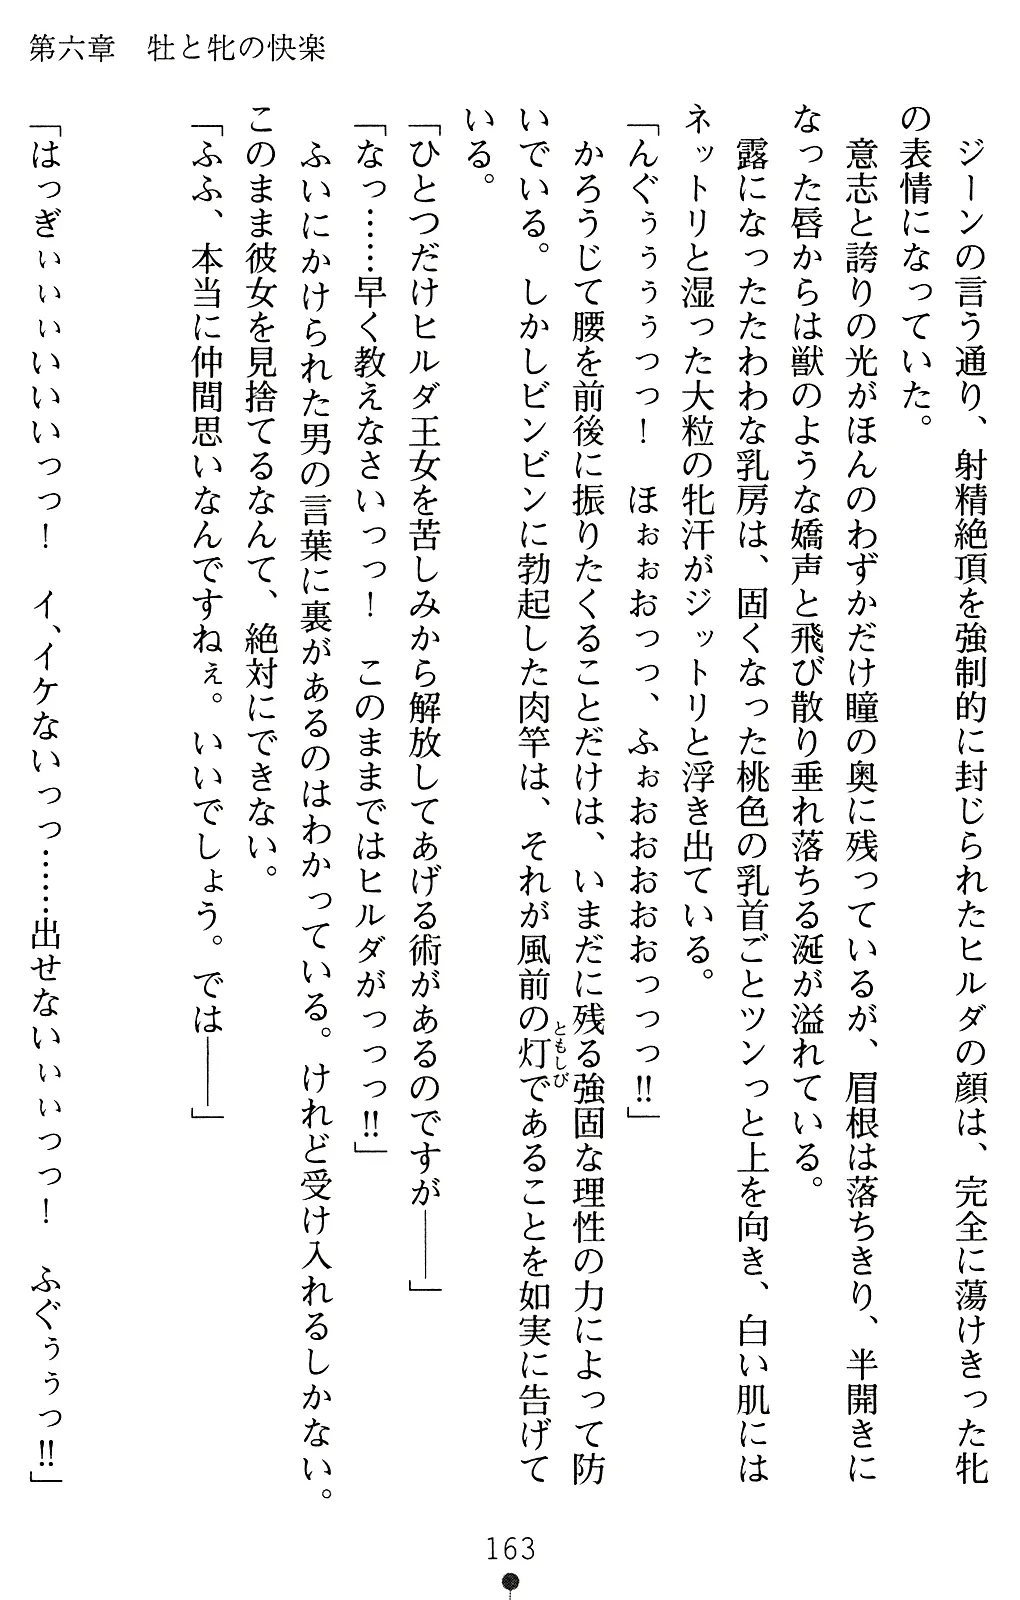 第六章　牡と牝の快楽
　ジーンの言う通り、射精絶頂を強制的に封じられたヒルダの顔は、完全に蕩けきった牝
の表情になっていた。
　意志と誇りの光がほんのわずかだけ瞳の奥に残っているが、眉根は落ちきり、半開きに
なった唇からは獣のような嬌声と飛び散り垂れ落ちる涎が溢れている。
　露になったたわわな乳房は、固くなった桃色の乳首ごとツンっと上を向き、白い肌には
ネットリと湿った大粒の牝汗がジットリと浮き出ている。
「んぐぅぅぅぅっっ！　ほぉぉおっっ、ふぉおおおおおっっっ!!」
　かろうじて腰を前後に振りたくることだけは、いまだに残る強固な理性の力によって防
いでいる。しかしビンビンに勃起した肉竿は、それが風前の灯であることを如実に告げて
ともしび
いる。
「ひとつだけヒルダ王女を苦しみから解放してあげる術があるのですが――」
「なっ……早く教えなさいっっ！　このままではヒルダがっっっ!!」
　ふいにかけられた男の言葉に裏があるのはわかっている。けれど受け入れるしかない。
このまま彼女を見捨てるなんて、絶対にできない。
「ふふ、本当に仲間思いなんですねぇ。いいでしょう。では――」
「はっぎぃぃぃいいいっっ！　イ、イケないっっ……出せないいぃぃっっ！　ふぐぅぅっ!!」
163